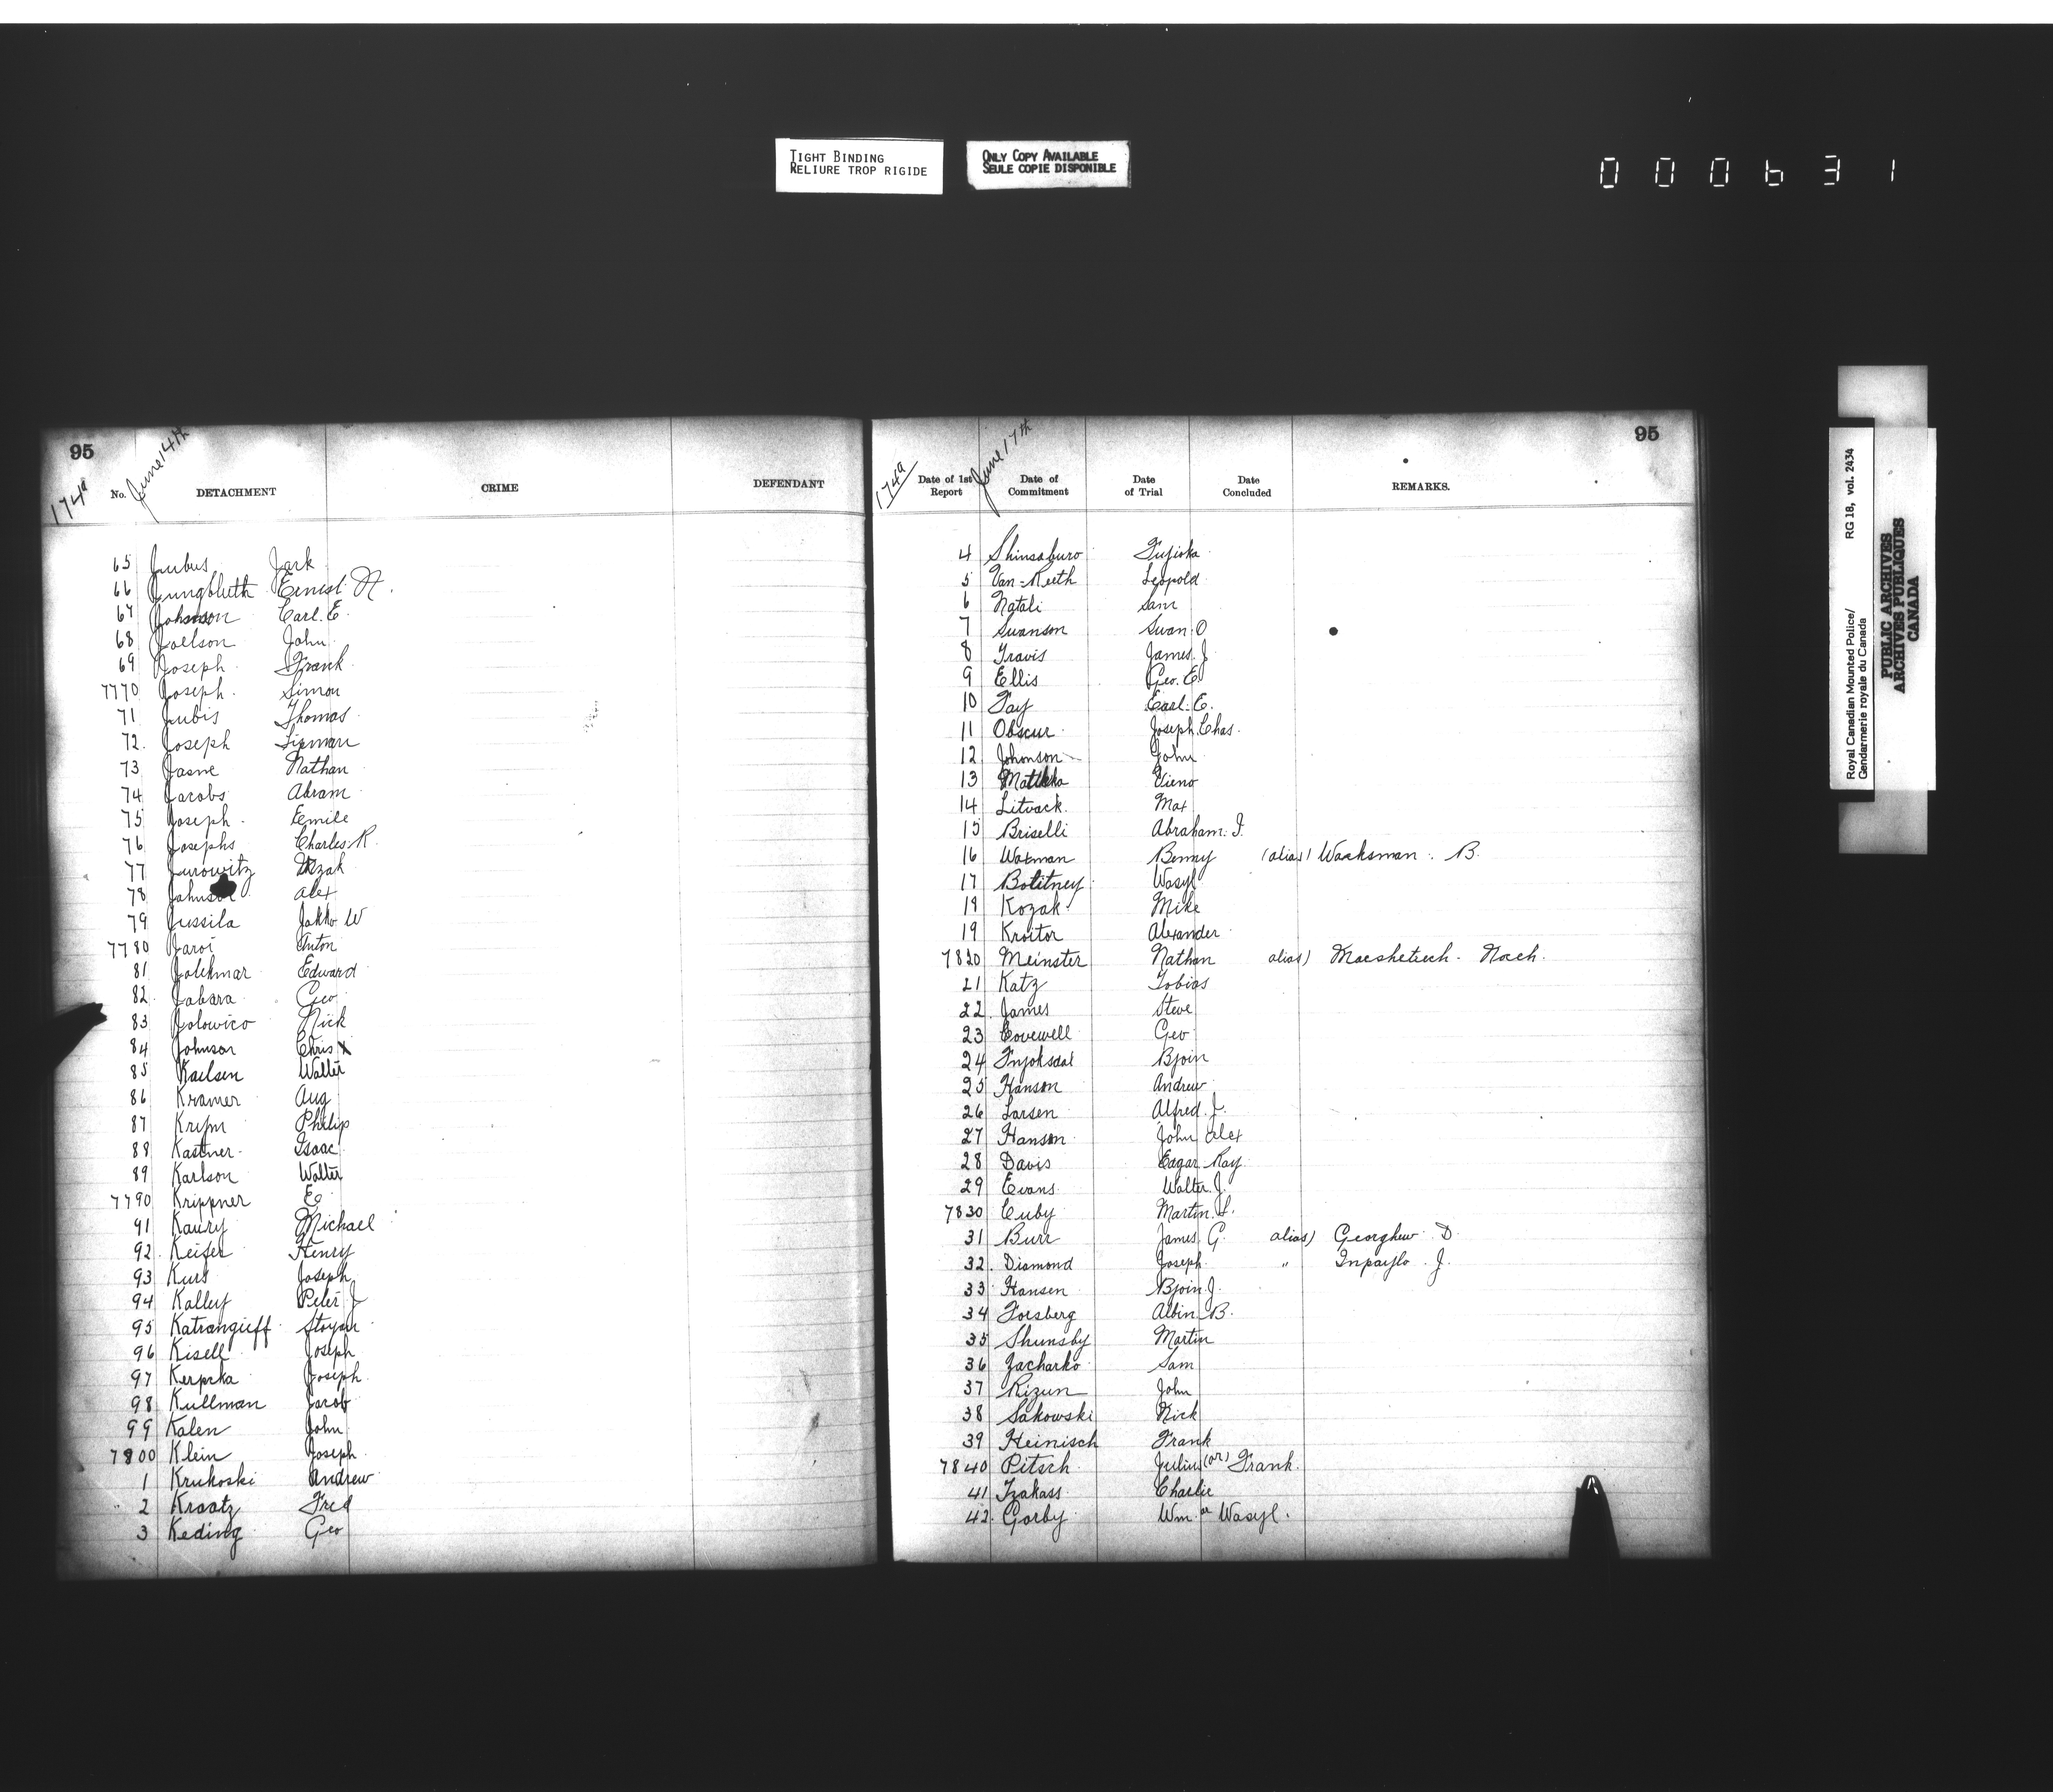 TIGHT BINDING
RELIURE TROP RIGIDE
ONLY COPY AVAILABLE
SEULE COPIE DISPONIBLE
000631
95
174a
June 14th
No. DETACHMENT CRIME DEFENDANT
65 Jubus Jack
66 Jungbluth Ernest
67 Johnson Carl. E.
68 Joelson John
69 Joseph Frank
7770 Joseph Simon
71 Jubis Thomas
72 Joseph Lipman
73 Jasne Nathan
74 Jacobs Abram
75 Joseph Emile
76 Josephs Charles R.
77 Jurowitz
78 Johnson Alex
79 Jussila Jakko W
7780 Jaroi Anton
81 Edward
82 Jabara Geo
83 Jolowico Nick
84 Johnson Chris
85 Kaelsen Walter
86 Kramer Aug
87 Krifm Philip
88 Kastner Isaac
89 Karlson Walter
7790 Krippner
91 Kaury Michael
92 Keifer Henry
93 Kurs Joseph
94 Kalley Peter J
95 Katrangieff Stoyan
96 Kisell Joseph
97 Kerpska Joseph
98 Kullman Jacob
99 Kalen John
7800 Klein Joseph
1 Krukoski Andrew
2 Kraatz Fred
3 Keding Geo
95
174a
June 17th
Date of 1st Report Date of Commitment Date of Trial Date Concluded REMARKS.
4 Shinsaburo Fujioka
5 Van-Reeth Leopold
6 Natali Sam
7 Swanson Swan O
8 Travis James J
9 Ellis Geo. E
10 Fay Earl. E.
11 Obscur Joseph Chas.
12 Johonson John
13 Vieno
14 Litvack Max
15 Briselli Abraham. I.
16 Waxman Benny (alias) Waaksman. B.
17 Bolitney Wasyl
18 Kozak Mike
19 Kroitor Alexander
7820 Meinster Nathan alias)
21 Katz Tobias
22 James Steve
23 Covewell Geo
24 Bjoin
25 Hanson Andrew
26 Larsen Alfred. J.
27 Hanson John Alex
28 Davis Edgar Ray
29 Evans Walter. J.
7830 Cuby Martin.
31 Burr James G. alias) Georghew D.
32 Diamond Joseph " J.
33 Hansen Bjoin J.
34 Forsberg Albin B.
35 Shunsby Martin
36 Zacharko Sam
37 Rizun John
38 Sakowski Nick
39 Heinisch Frank
7840 Pitsch Julius (or) Frank.
41 Charlie
42 Gorby Wm. or Wasyl.
Royal Canadian Mounted Police/
Gendarmerie royale du Canada
RG 18, vol. 2434
PUBLIC ARCHIVES
ARCHIVES PUBLIQUES
CANADA